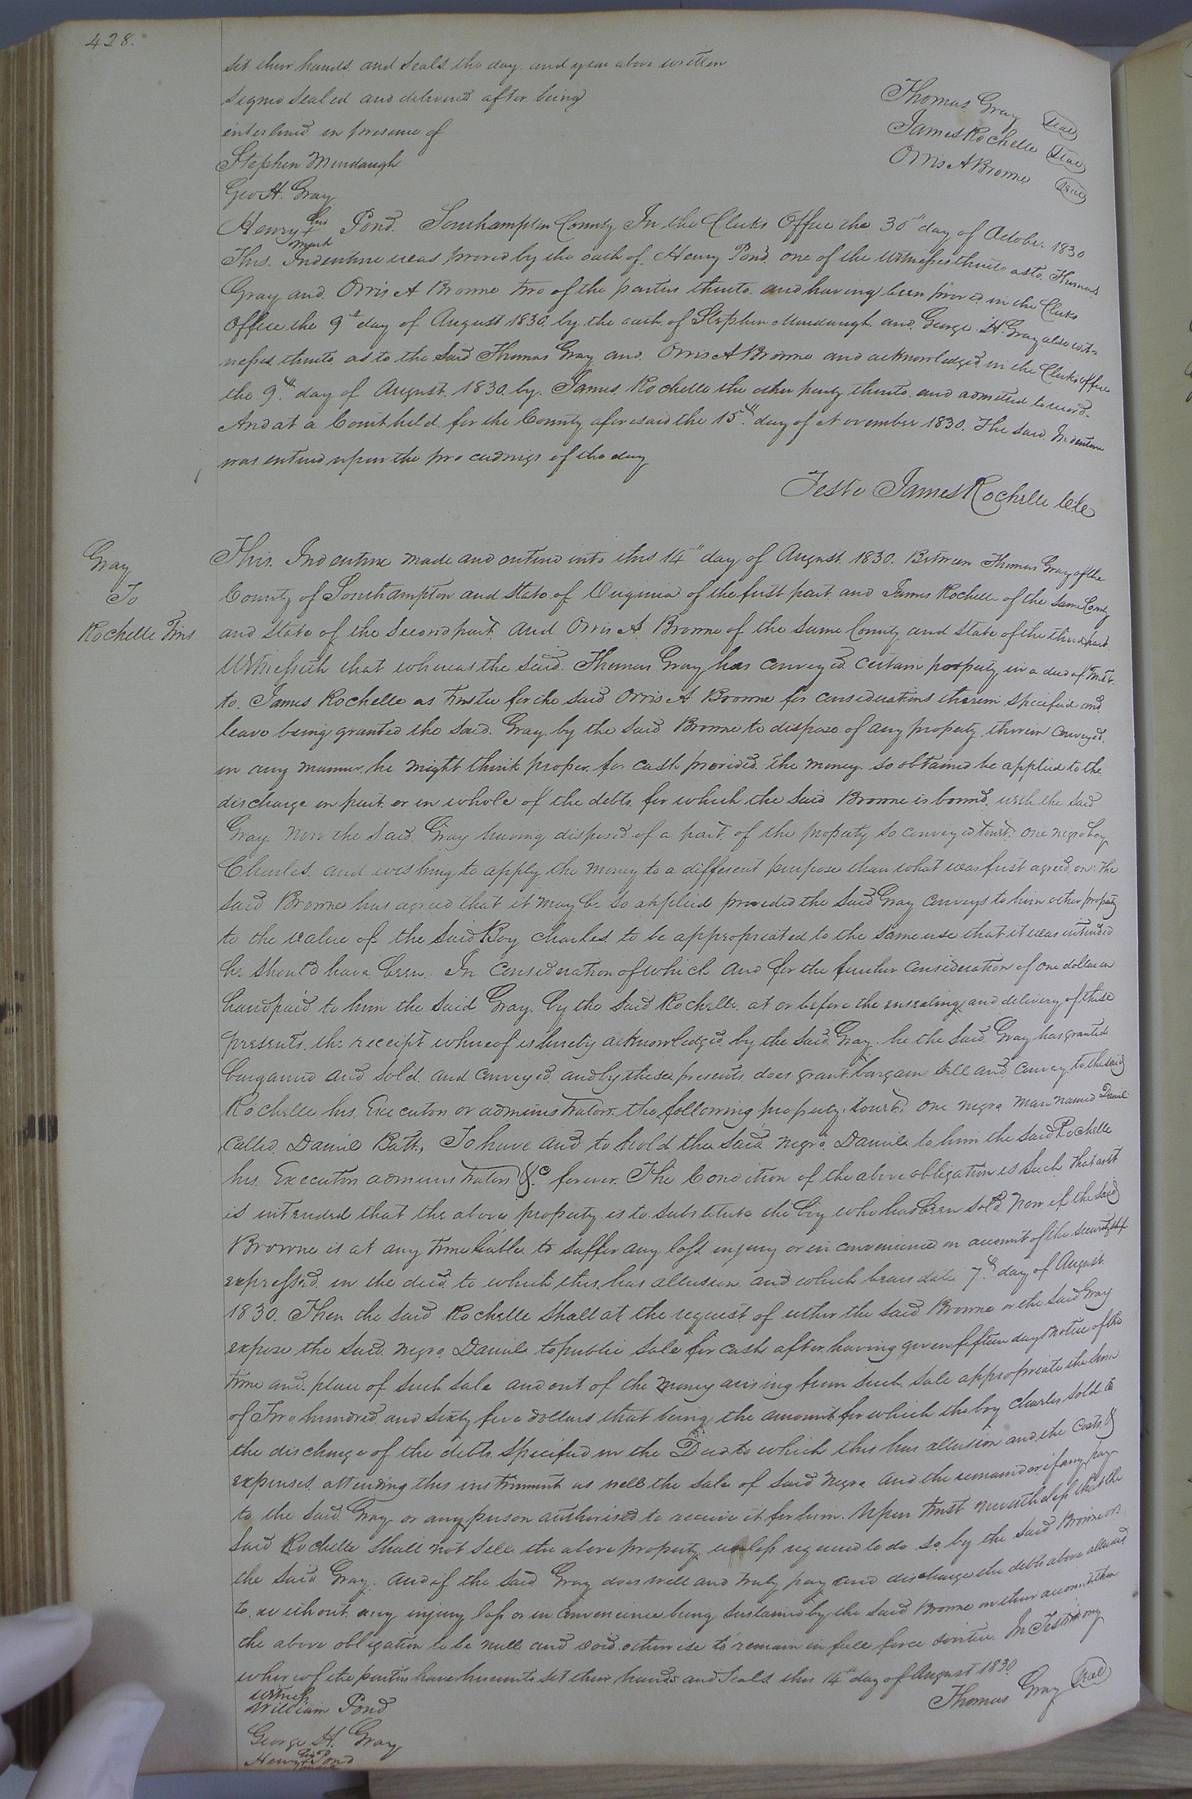 428.
set their hands and seals the day and year above written
Signed sealed and delivered after being
interlined in presence of
Thomas Gray Seal
James Rochelle Seal
Orris A Browne Seal
Stephen Mundaugh
Geo H. Gray
Henry his mark Pond. Southampton County In the Clerks Office the 30th day of October 1830
This Indenture was proved by the oath of Henry Pond one of the witnesses thereto as to Thomas
Gray and Orris A Browne two of the parties thereto and having been proved in the Clerks
Office the 9th day of August 1830 by the oath of Stephen Mundaugh and George H Gray also wit-
nesses thereto as to the said Thomas Gray and Orris A Browne and acknowledged in the Clerks office
the 9th day of August 1830 by James Rochelle the other party thereto and admitted to record.
And at a Court held for the County aforesaid the 15th day of November 1830. The said Indenture
was entered upon the proceedings of the day
Teste James Rochelle Clk
Gray
To
Rochelle Trus
This Indenture made and entered into this 14th day of August 1830. Between Thomas Gray of the
County of Southampton and State of Virginia of the first part and James Rochelle of the same County
and State of the second part and Orris A. Browne of the same County and State of the third part
Witnesseth that whereas the said Thomas Gray has conveyed certain property in a deed of Trust
to James Rochelle as trustee for the said Orris A Browne for considerations therein specified and
leave being granted the said Gray by the said Browne to dispose of any property therein conveyed
in any manner he might think proper for cash provided the money so obtained be applied to the
discharge in part or in whole of the debts for which the said Browne is bound with the said
Gray. Now the said Gray having disposed of a part of the property so conveyed towit: one negro boy
Charles and wishing to apply the money to a different purpose than what was first agreed on the
said Browne has agreed that it may be so applied provided the said Gray conveys to him other property
to the value of the said Boy Charles to be appropreated to the same use that it was intended
he should have been. In consideration of which and for the further consideration of one dollar in
hand paid to him the said Gray by the said Rochelle at or before the ensealing and delivery of these
presents, the receipt whereof is hereby acknowledged by the said Gray he the said Gray has granted
bargained and sold and conveyed and by these presents does grant bargain sell and convey to the said
Rochelle his Executors or administrators the following property towit: one negro man named Daniel
called Daniel Batts, To have and to hold the said negro Daniel to him the said Rochelle
his Executors administrators &c forever. The Condition of the above obligation is such that as it
is intended that the above property is to substitute the boy who has been sold Now if the said
Browne is at any time liable to suffer any loss injury or in convenience on account of the
expressed in the deed to which this has allusion and which bears date 7th day of August
1830. Then the said Rochelle shall at the request of either the said Browne or the said Gray
expose the said negro Daniel to public sale for cash after having given fifteen days notice of the
time and place of such sale and out of the money arising from such sale appropreate the sum
of Two hundred and sixty five dollars that being the amount for which the boy Charles sold to
the discharge of the debts specified in the Deed to which this has allusion and the costs &
expenses attending this instrument as well the sale of said negro and the remainder if any pay
to the said Gray or any person authorised to receive it for him. Upon trust nevertheless that the
said Rochelle shall not sell the above property unless required to do so by the said Browne or
the said Gray. And if the said Gray does well and truly pay and discharge the debts above alluded
to without any injury loss or in convenience being sustained by the said Browne on their account then
the above obligation to be null and void otherwise to remain in full force &virtue. In Testimony
whereof the parties have hereunto set their hands and seals this 14th day of August 1830
Witness
Thomas Gray Seal
William Pond
George H. Gray
Henry his Pond